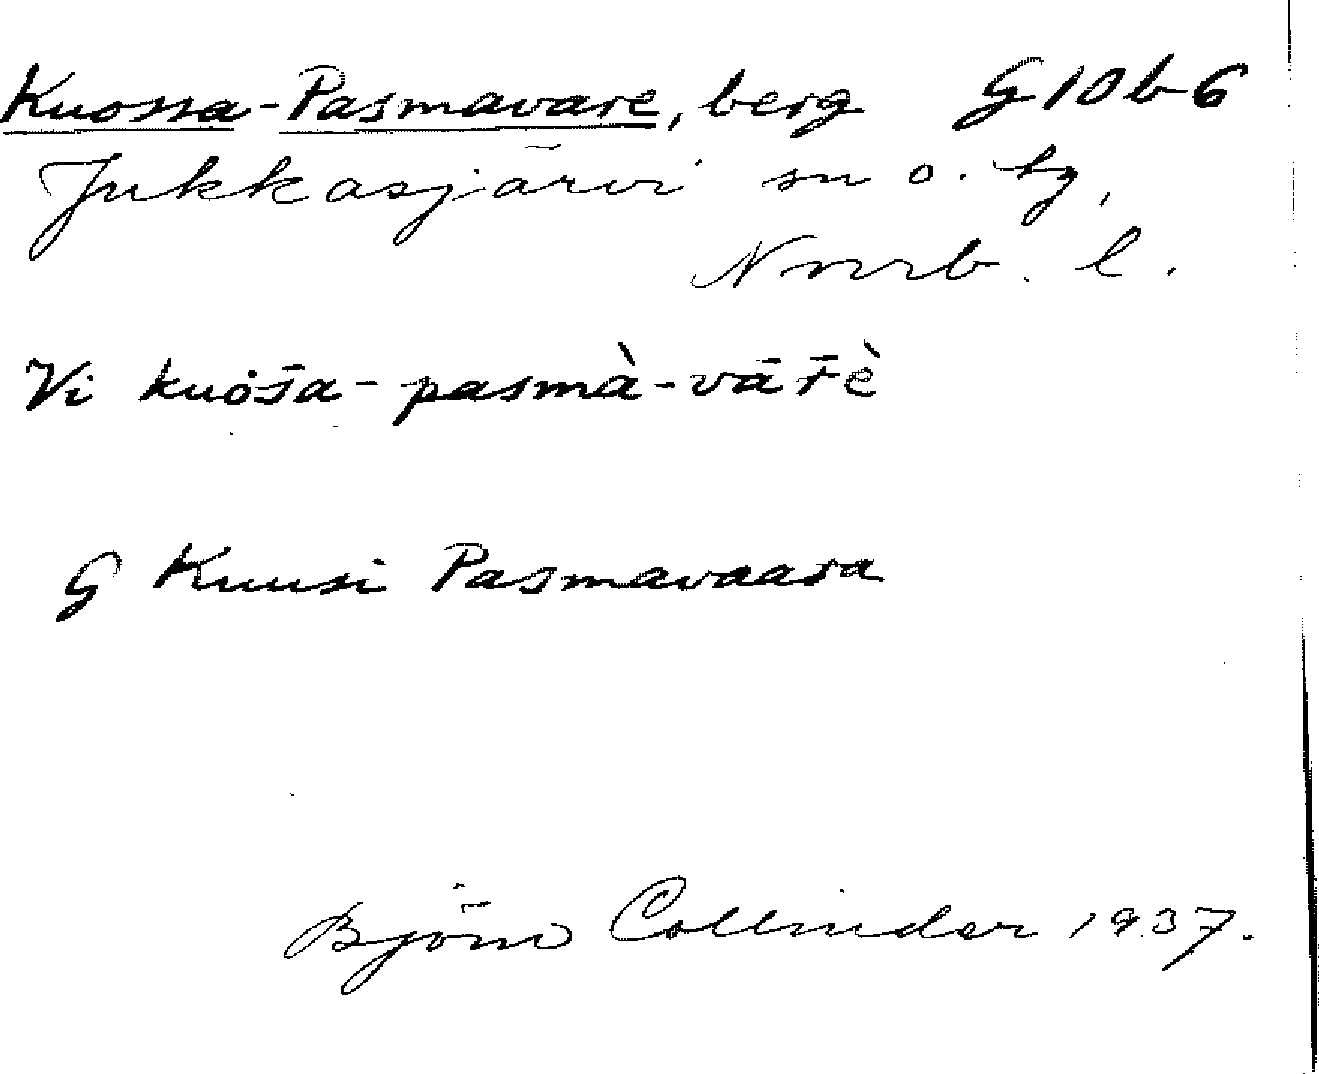 Kuossa-Pasmavare, berg G10b6
Jukkasjärvi sn o. tg,
Nnrb. l.
Vi kuȯs̄a-pasmà-vār̄è
G Kuusi Pasmavaara
Björn Collinder 1937.